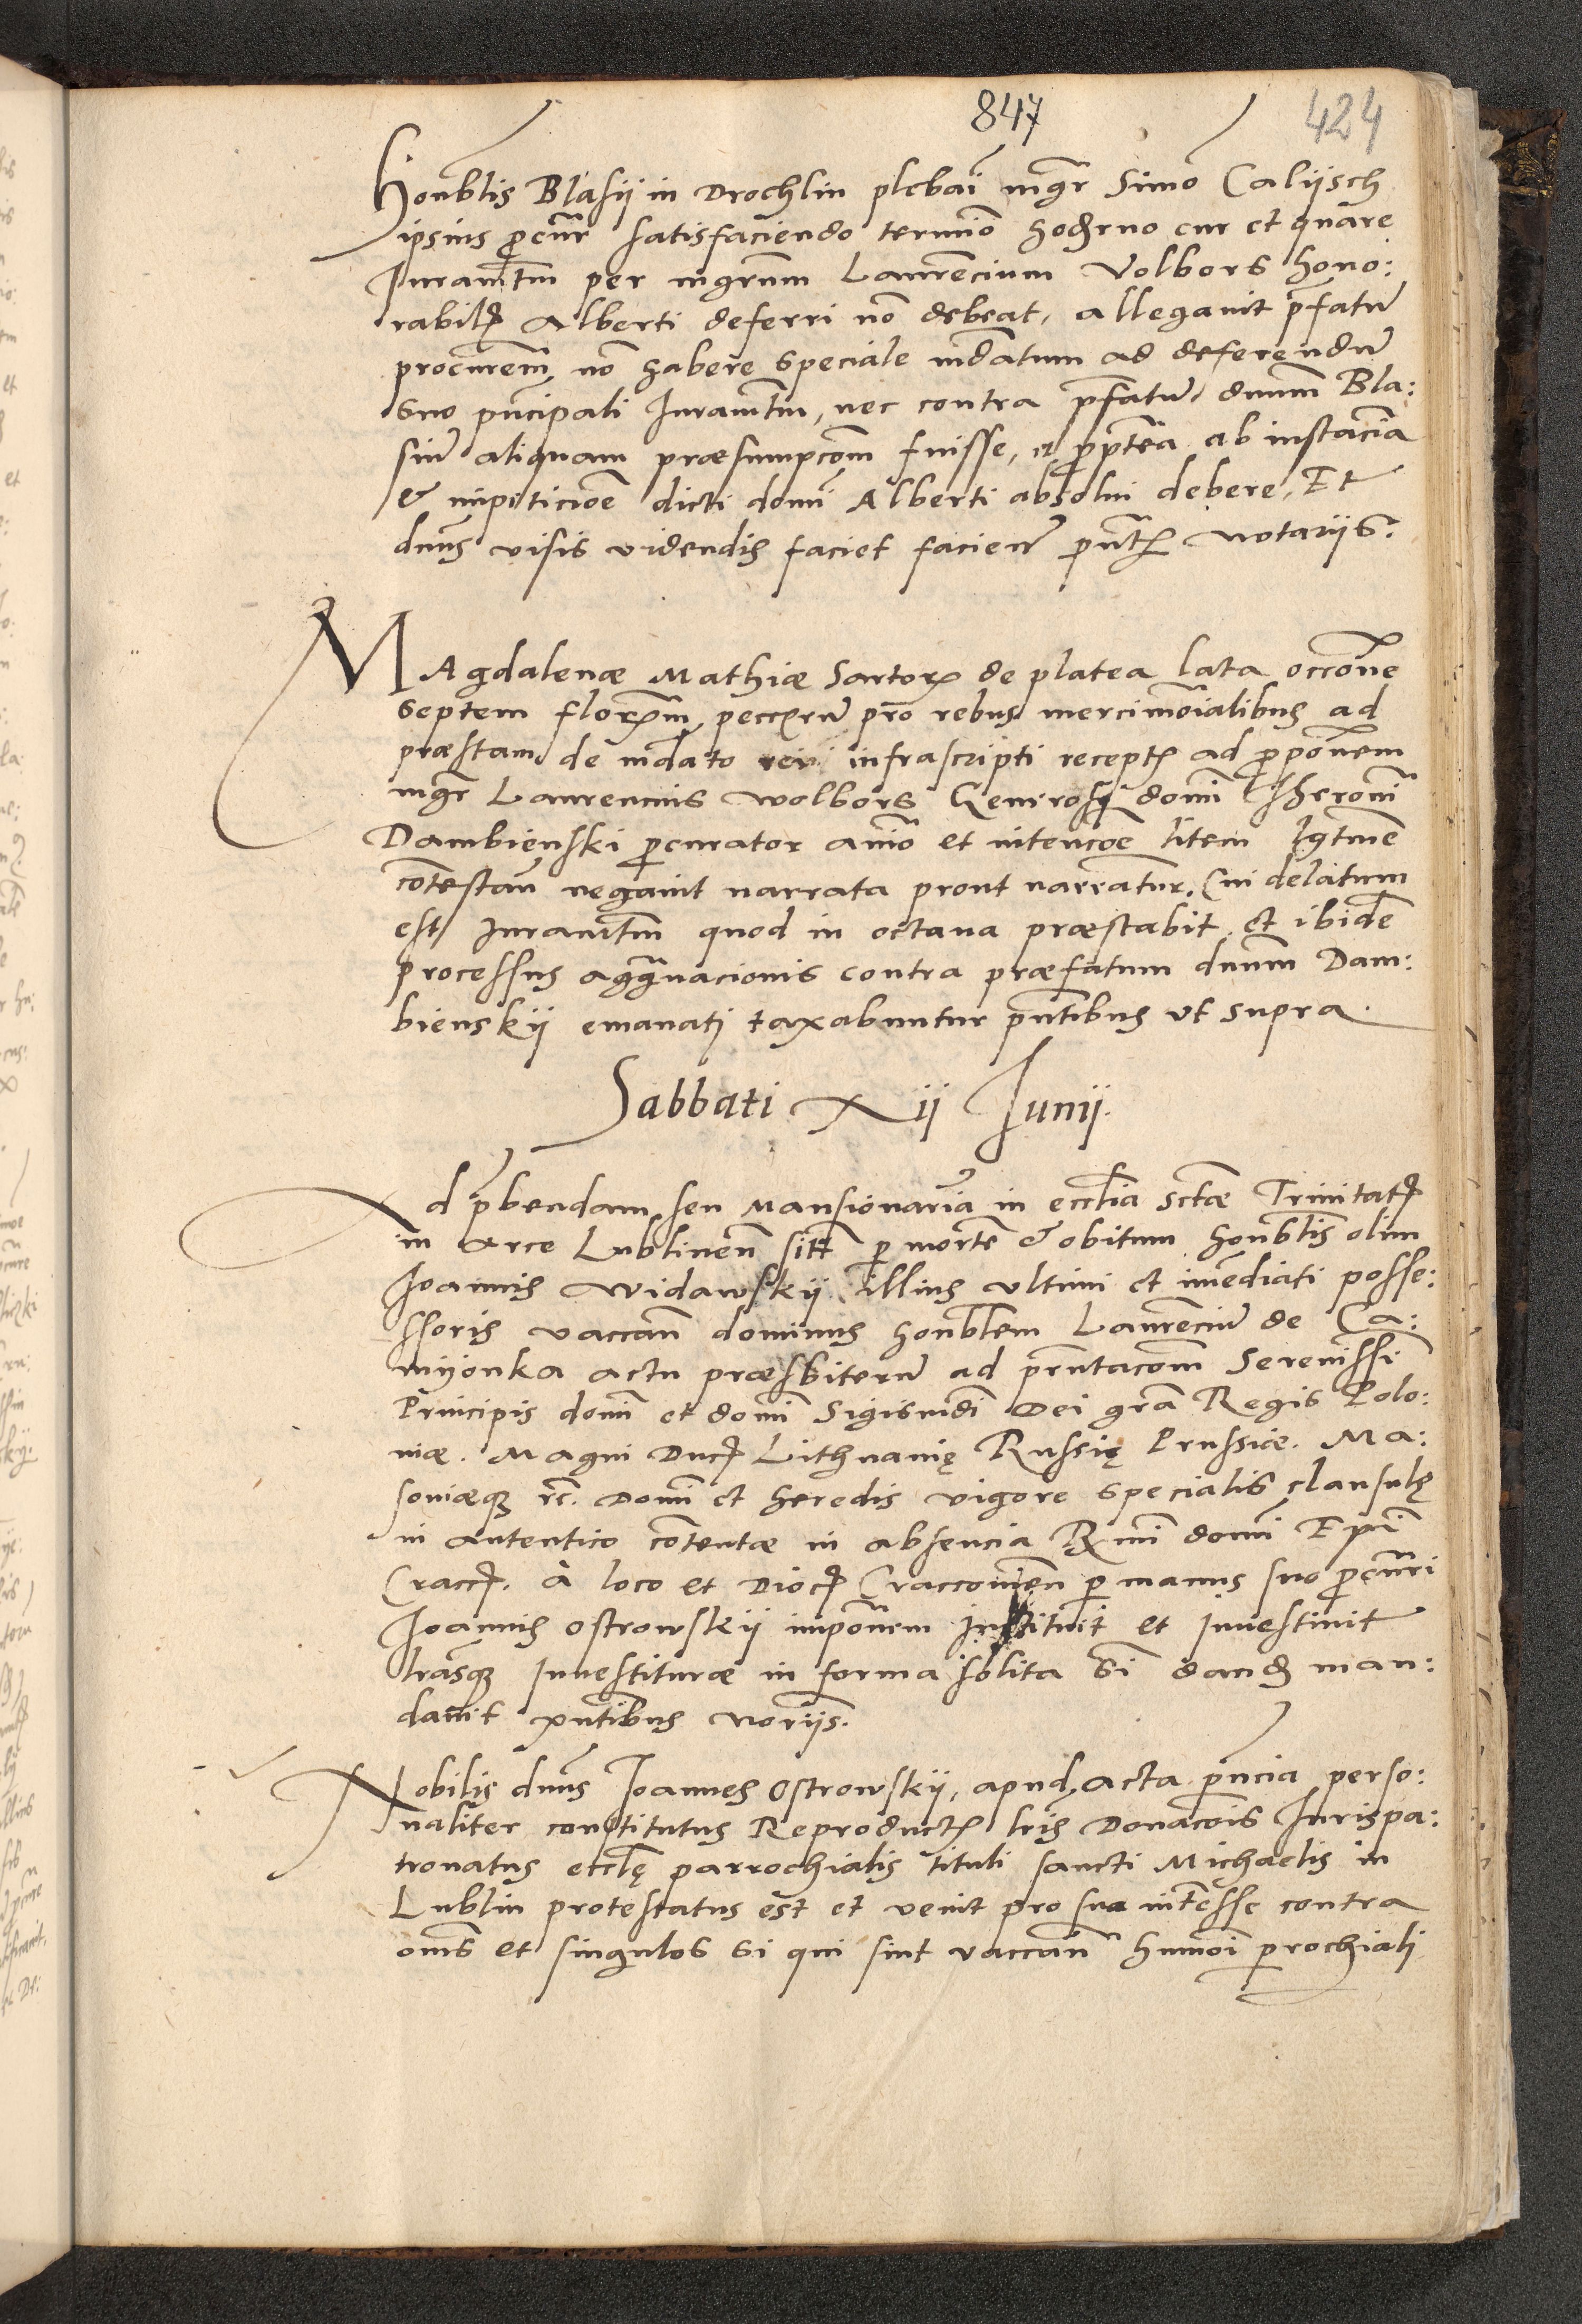 847 424
Honorablis Blasii in Drochlin plebai mgr Simo Calijsch
ipsius pcur satisfaciendo termio hodierno cur et quare
Juramtm per mgrum Laurencium Volbors hono:
rabilis Alberti deferri no debeat, allegavit pfatu
procurem no habere speciale mdatum ad deferendu
suo pncipali Juramtm, nec contra pfatu dnum Bla:
siu aliquam præsumpcom fuisse, et ppterea ab instacia
& impeticioe dicti domi Alberti absolui debere, Et
dnus visis videndis faciet faciend pntibus Notariis.
MAgdalenæ Mathiæ Sartoris de platea lata occone
septem floreorum peccuniaru pro rebus mercimoialibus ad
præstam de mdato rei infrascripti receptis ad pponem
mgr Laurencius Wolbors Generosi domi Iheronimi
Dambienski pcurator animo et intencoe litem lgtme
contestan negavit narrata prout narratur. Cui delatum
est Juramtm quod in octava præstabit et ibidem
processus aggravacionis contra præfatum dnum Dam:
bienskij emanati taxabuntur pntibus ut supra.
Sabbati Xii Junij.
Ad pbendam seu Mansionaria in ecclia sctæ Trinitatis
in Arce Lublinen sitt p morte & obitum honorablis olim
Joannis Widawskij illius ultimi et imediati posse:
ssoris vaccan dominus honorablem Laurenciu de Ca:
myonka actu præsbiteru ad pntacom Serenissimi
Principis domi et domi Sigismdi Dei gra Regis Polo:
niæ. Magni Ducis Lithuanię Russię Prussiæ. Ma:
soviæque etc. Domi et heredis vigore specialis clausulę
in autentico contentæ in absencia Rmi domi Epi
Cracc. A loco et Dioc Cracconien p manus suo pcuri
Joannis Ostrowskij imponem instituit et investivit
lrasque Investituræ in forma solita sibi dandas man:
davit pntibus Notriis.
Nobilis dnus Joannes Ostrowskij, apud acta pncia perso:
naliter constitutus Reproductis lris Donacois Jurispa:
tronatus ecclę parrochialis tituli sancti Michaelis in
Lublin protestatus est et venit pro suo interesse contra
omes et singulos si qui sint vaccan humoi prochiali